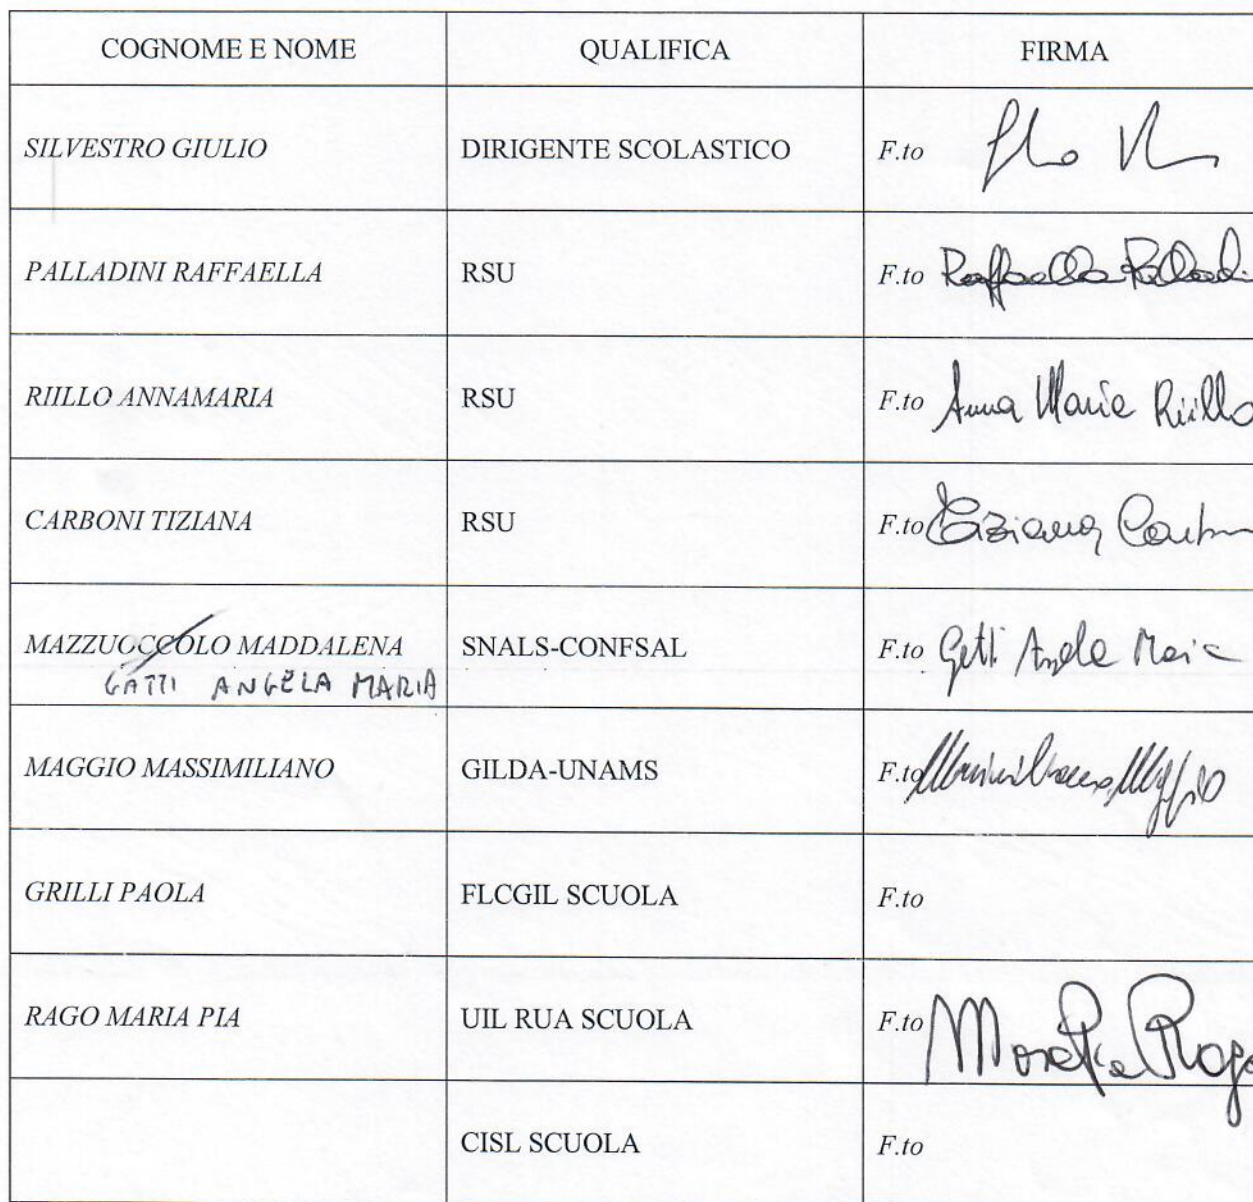 COGNOME E NOME QUALIFICA FIRMA
SILVESTRO GIULIO DIRIGENTE SCOLASTICO F.to
PALLADINI RAFFAELLA RSU F.to Raffaella Palladi
RIILLO ANNAMARIA RSU F.to Anna Maria Riillo
CARBONI TIZIANA RSU F.to Tiziana
MAZZUOCCOLO MADDALENA SNALS-CONFSAL F.to Gatti Angela Maria
GATTI ANGELA MARIA
MAGGIO MASSIMILIANO GILDA-UNAMS F.to Massimiliano Maggio
GRILLI PAOLA FLCGIL SCUOLA F.to
RAGO MARIA PIA UIL RUA SCUOLA F.to Maria Pia Rago
CISL SCUOLA F.to